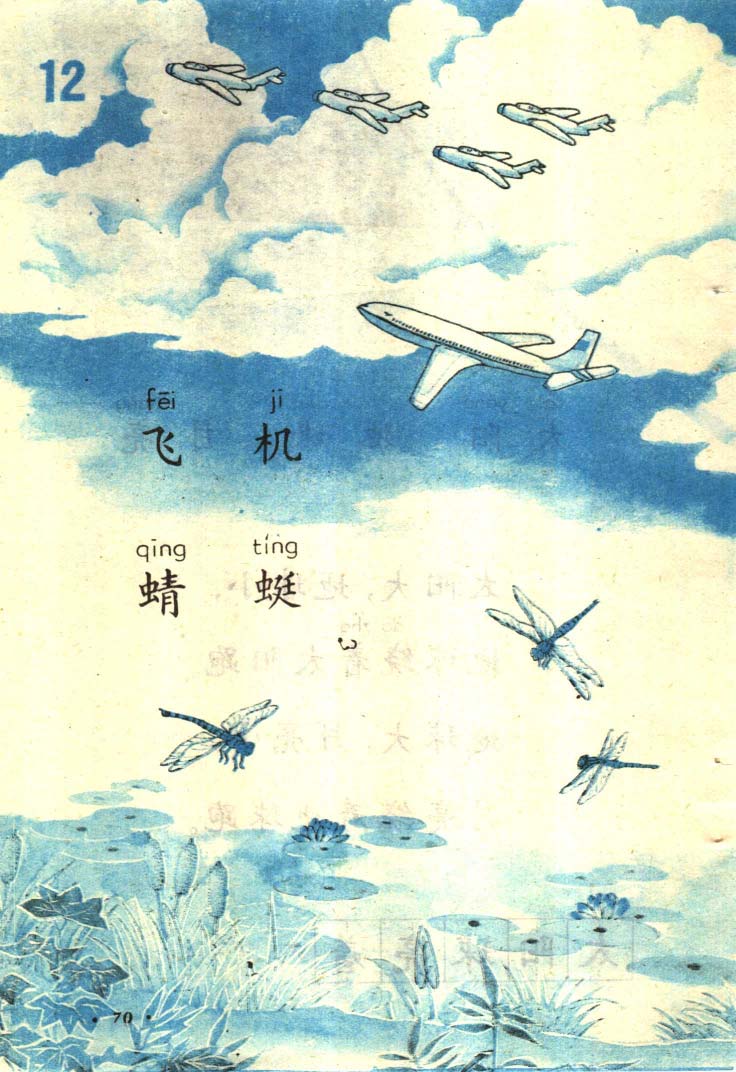 12
fēi jī
飞 机
qīng tíng
蜻 蜓
70